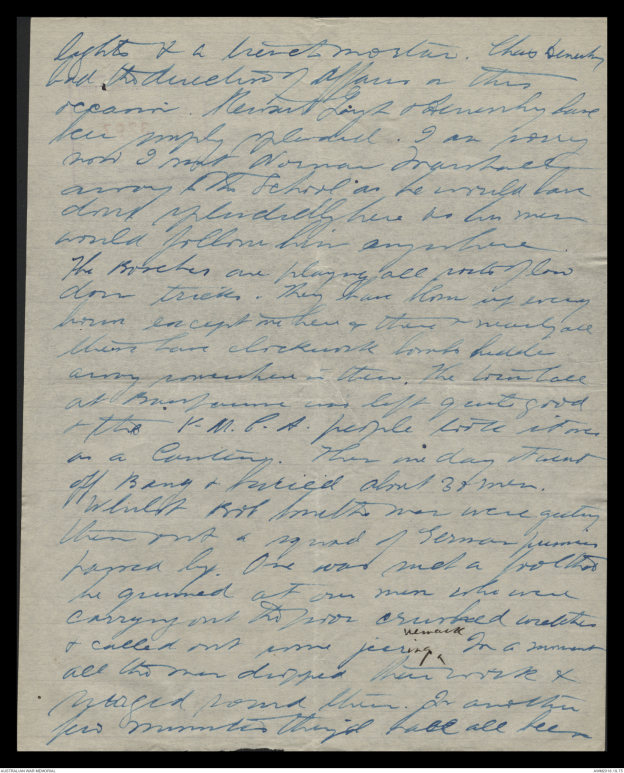 lights & a trench mortar. Chas Denehy
had the direction of affairs on this
occasion. Stewart Lay &  Denehy have
been simply splendid. I am sorry
now I sent Norman Marshall
away to the School as he would have
done splendidly here as his men
would follow him anywhere.
The Bosches are playing all sorts of low
down tricks. They have blown up every
house except one here & there & nearly all
these have clockwork bombs hidden
away somewhere in them. The town hall
at Bapaume was left quite good
& the Y.M.C.A. people took it over
as a Canteen. Then one day it went
off Bang & buried about 30 men.
Whilst Bob Smith's men were getting
them out a squad of German prisoners
passed by. One was such a fool that
he grinned at our men who were
carrying out the poor crushed wretches
& called out some jeering remark. In a moment
all the men dropped their work &
surged round them. In another
few minutes they'd have all been
AUSTRALIAN WAR MEMORIAL
AWM2018.19.75